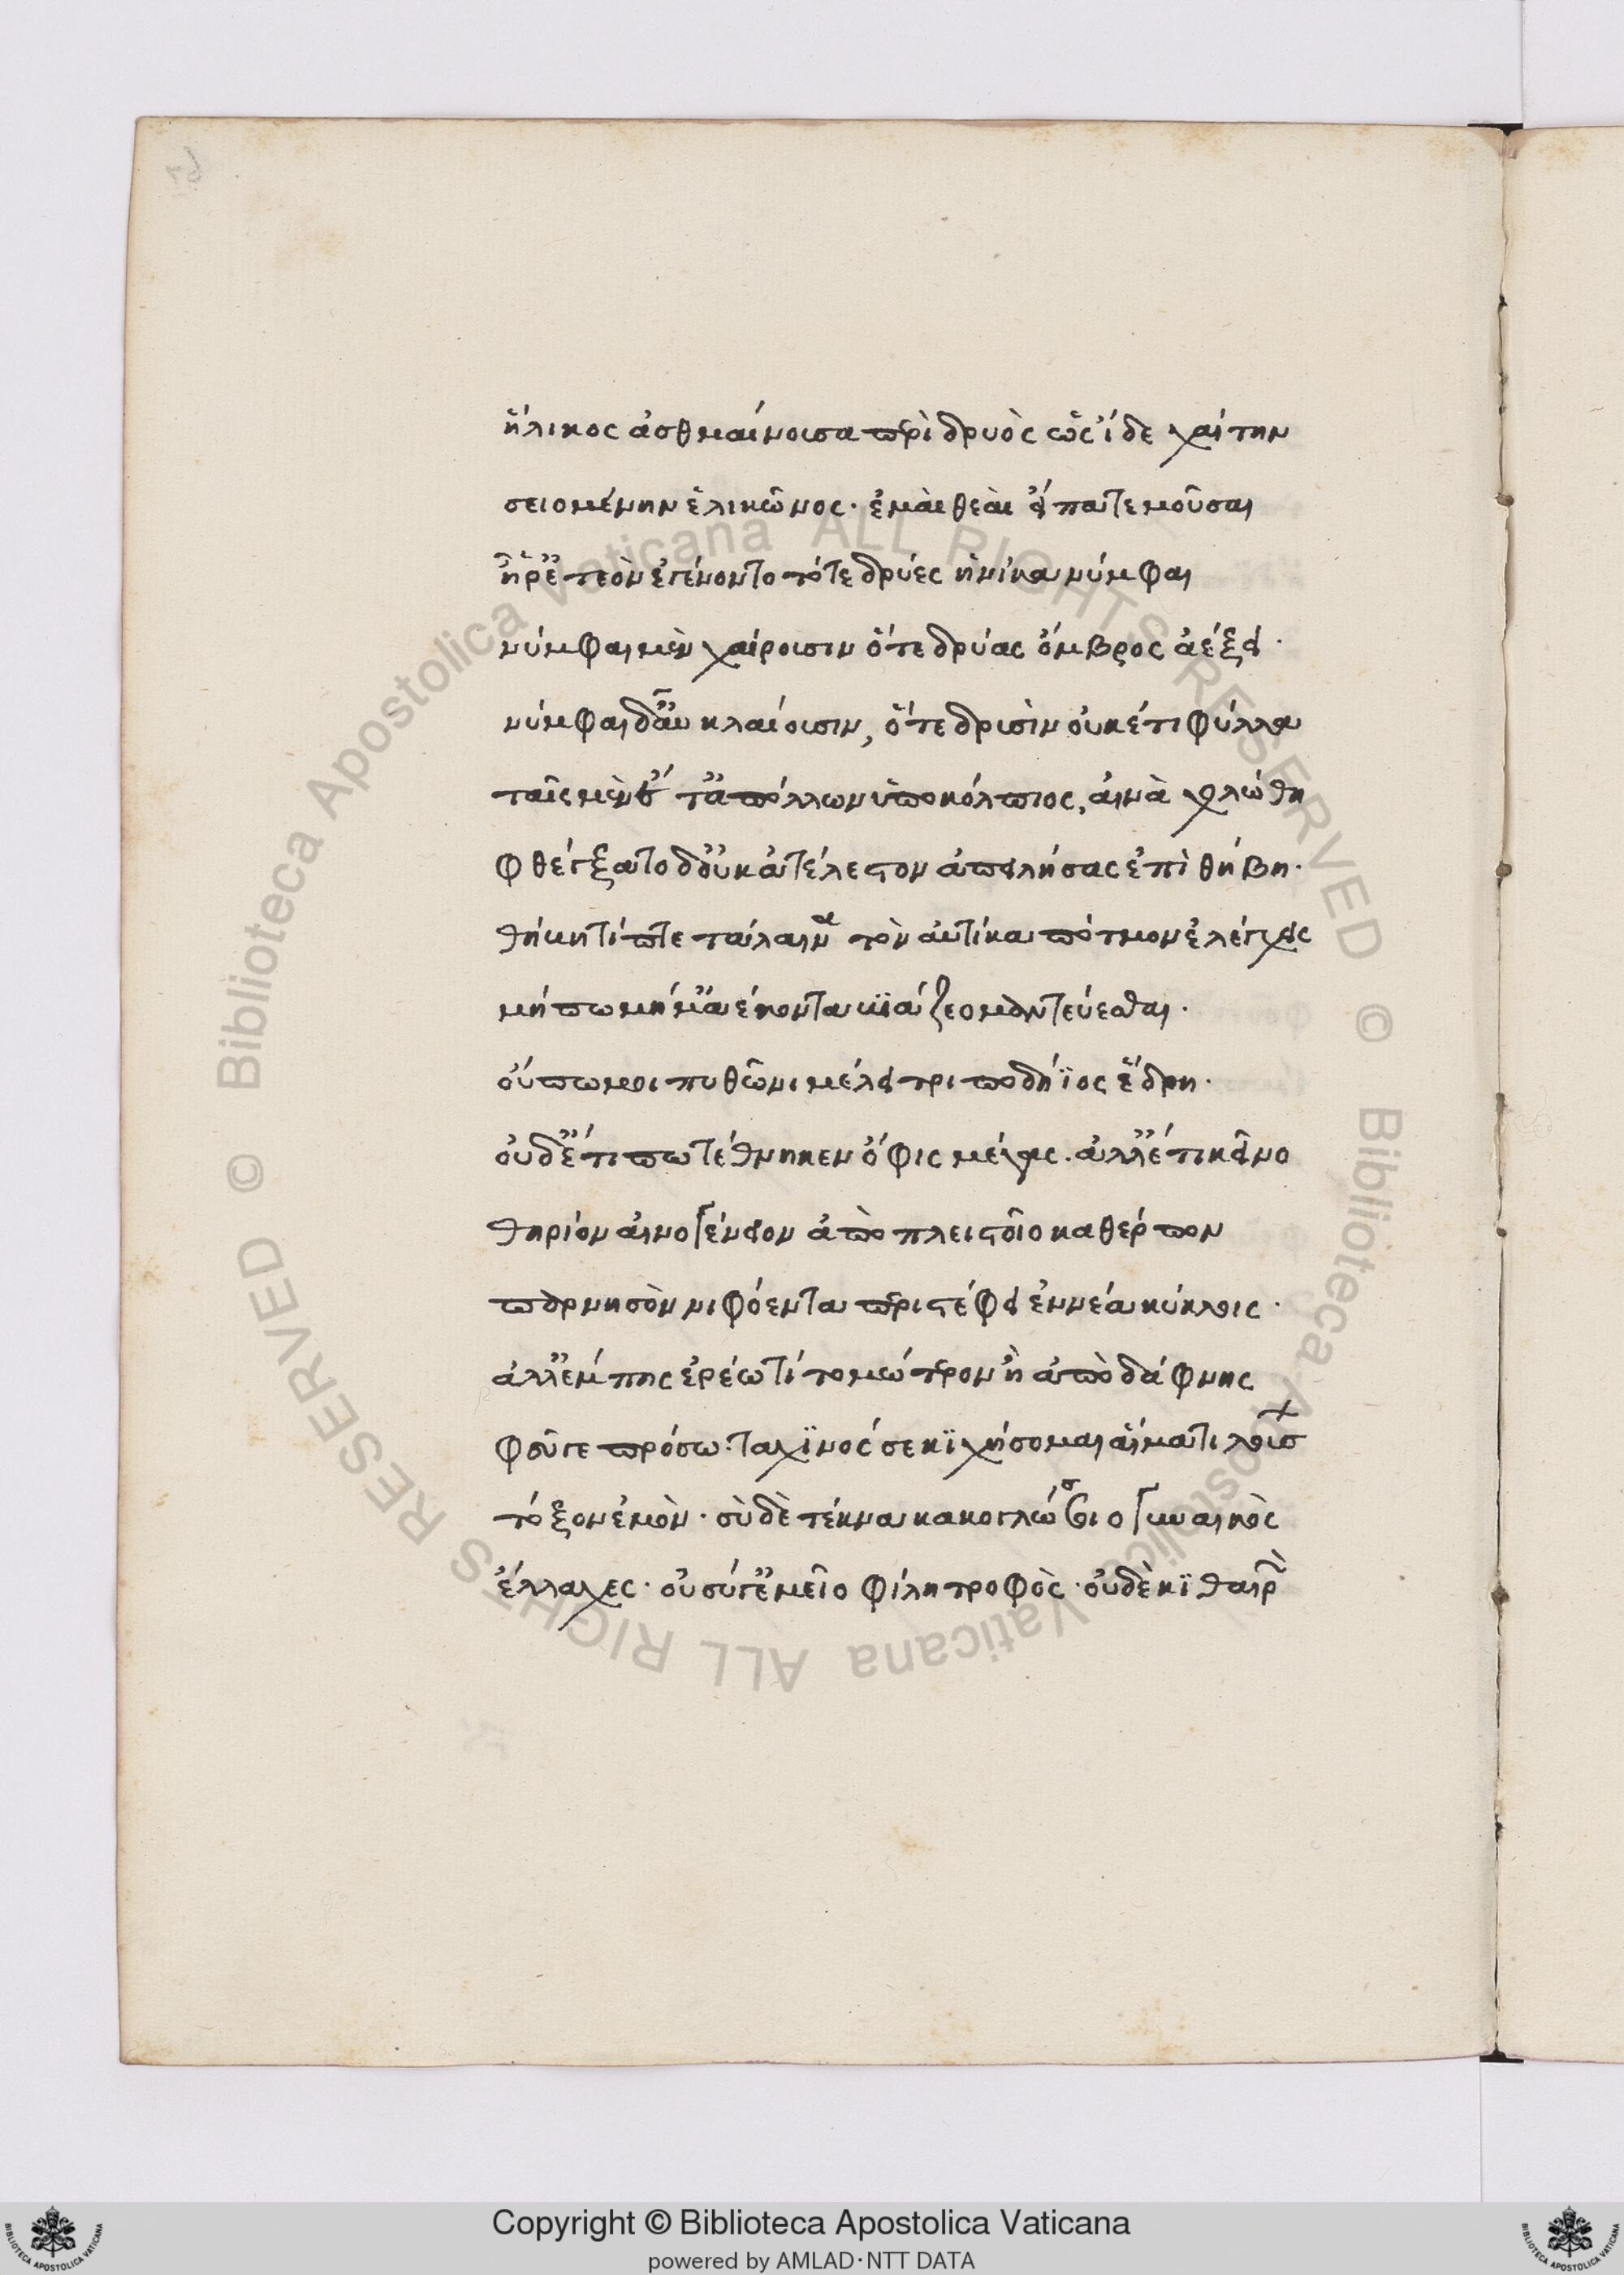 ἥλικος ἀσθμαίνουσα περὶ δρυὸς ὡς ἴδε χαίτην
σειομένην ἑλικῶνος· ἐμαὶ θεαὶ εἴπατε μοῦσαι
ἦ ῥ' ἐτεὸν ἐγένοντο τότε δρύες ἡνίκα νύμφαι
νύμφαι μὲν χαίρουσιν ὅτε δρύας ὄμβρος ἀέξει·
νύμφαι δ' αὖ κλαίουσιν, ὅτε δρυσὶν οὐκέτι φύλλα
ταῖς μὲν ἔτ' ἀπόλλων ὑποκόλπιος, αἰνὰ χολώθη
φθέγξατο δ' οὐκ ἀτέλεστον ἀπειλήσας ἐπὶ θήβῃ·
θήβη τίπτε τάλαινα τὸν αὐτίκα πότμον ἐλέγχεις
μήπω μή μ' ἀέκοντα βιάζεο μαντεύεσθαι·
οὔπω μοι πυθῶνι μέλει τριποδήϊος ἕδρη·
οὐδέ τί πω τέθνηκεν ὄφις μέγας. ἀλλ' ἔτι κεῖνο
θηρίον αἰνογένειον ἀπὸ πλειστοῖο καθέρπον
παρνησὸν νιφόεντα περιστέφει ἐννέα κύκλοις·
ἀλλ' ἔμπης ἐρέω τί τομώτερον ἢ ἀπὸ δάφνης
φεῦγε πρόσω· ταχινός σε κιχήσομαι αἵματι λούσ
τόξον ἐμὸν· σὺ δὲ τέκνα κακογλώσσοιο γυναικὸς
ἔλλαχες· οὐ σύ γ' ἐμεῖο φίλη τροφὸς· οὐδὲ κιθαιρ
Copyright © Biblioteca Apostolica Vaticana
powered by AMLAD·NTT DATA
© Biblioteca Apostolica Vaticana ALL RIGHTS RESERVED
© Biblioteca Apostolica Vaticana ALL RIGHTS RESERVED